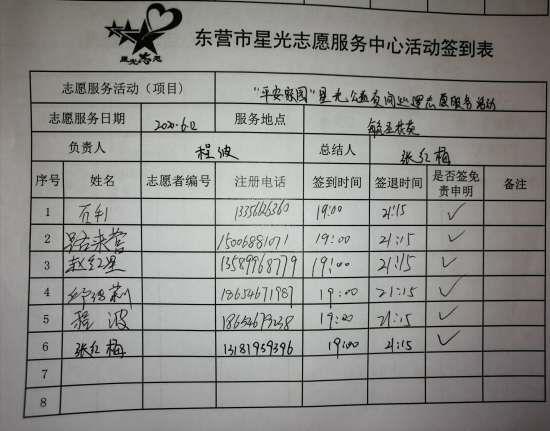 星光志愿
东营市星光志愿服务中心活动签到表
志愿服务活动（项目） "平安家园"星光公益夜间巡逻志愿服务活动
志愿服务日期 2020.6.12 服务地点
负责人 程波 总结人 张红梅
序号 姓名 志愿者编号 注册电话 签到时间 签退时间 是否签免责申明 备注
1 19:00 21:15 ✓
2 15006881071 19:00 21:15 ✓
3 赵红星 13589968779 19:00 21:15 ✓
4 18654671987 19:00 21:15 ✓
5 程波 19:00 21:15 ✓
6 张红梅 13181959396 19:00 21:15 ✓
7
8